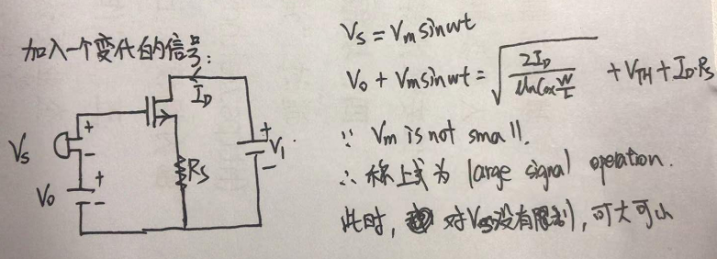 加入一个变化的信号:
I_D
V_s
+
-
V_0
+
-
R_S
+
V_1
-
V_s = V_m sinωt
V_0 + V_m sinωt = √(2I_D / (μnCox W/L)) + V_TH + I_D·R_S
∵ V_m is not small.
∴ 称上式为 large signal operation.
此时, 对V_GS没有限制, 可大可小